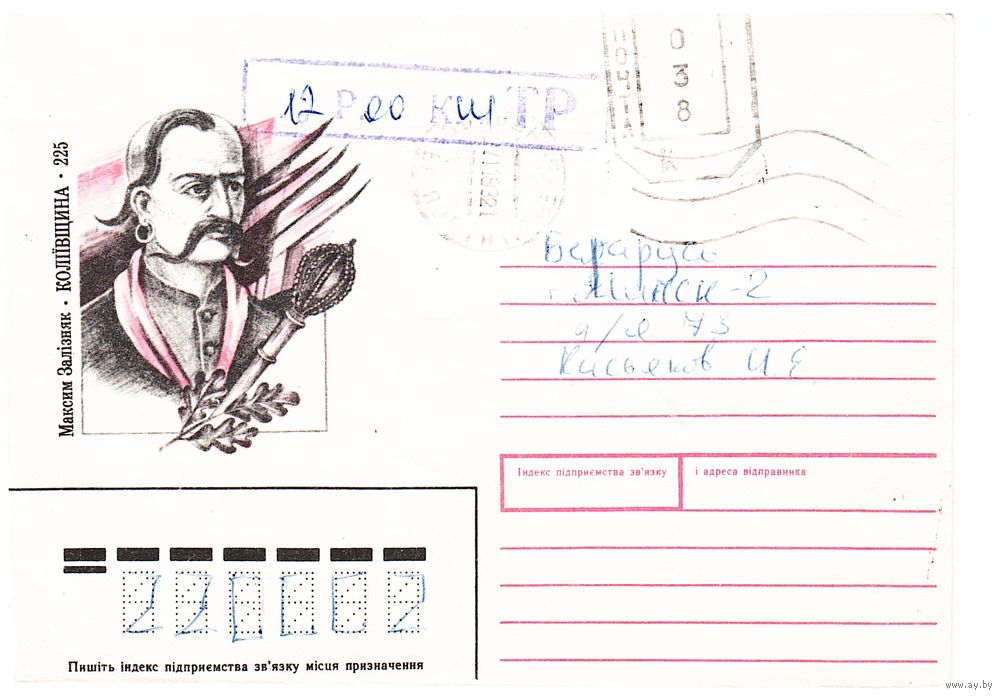 Максим Залізняк · КОЛІЇВЩИНА · 225
12 Р 00 К ТР
ПОЧТА
038
Беларусь
г. Минск-2
а/я 73
Касьяков И. Е.
Індекс підприємства зв'язку
і адреса відправника
220002
Пишіть індекс підприємства зв'язку місця призначення
www.ay.by